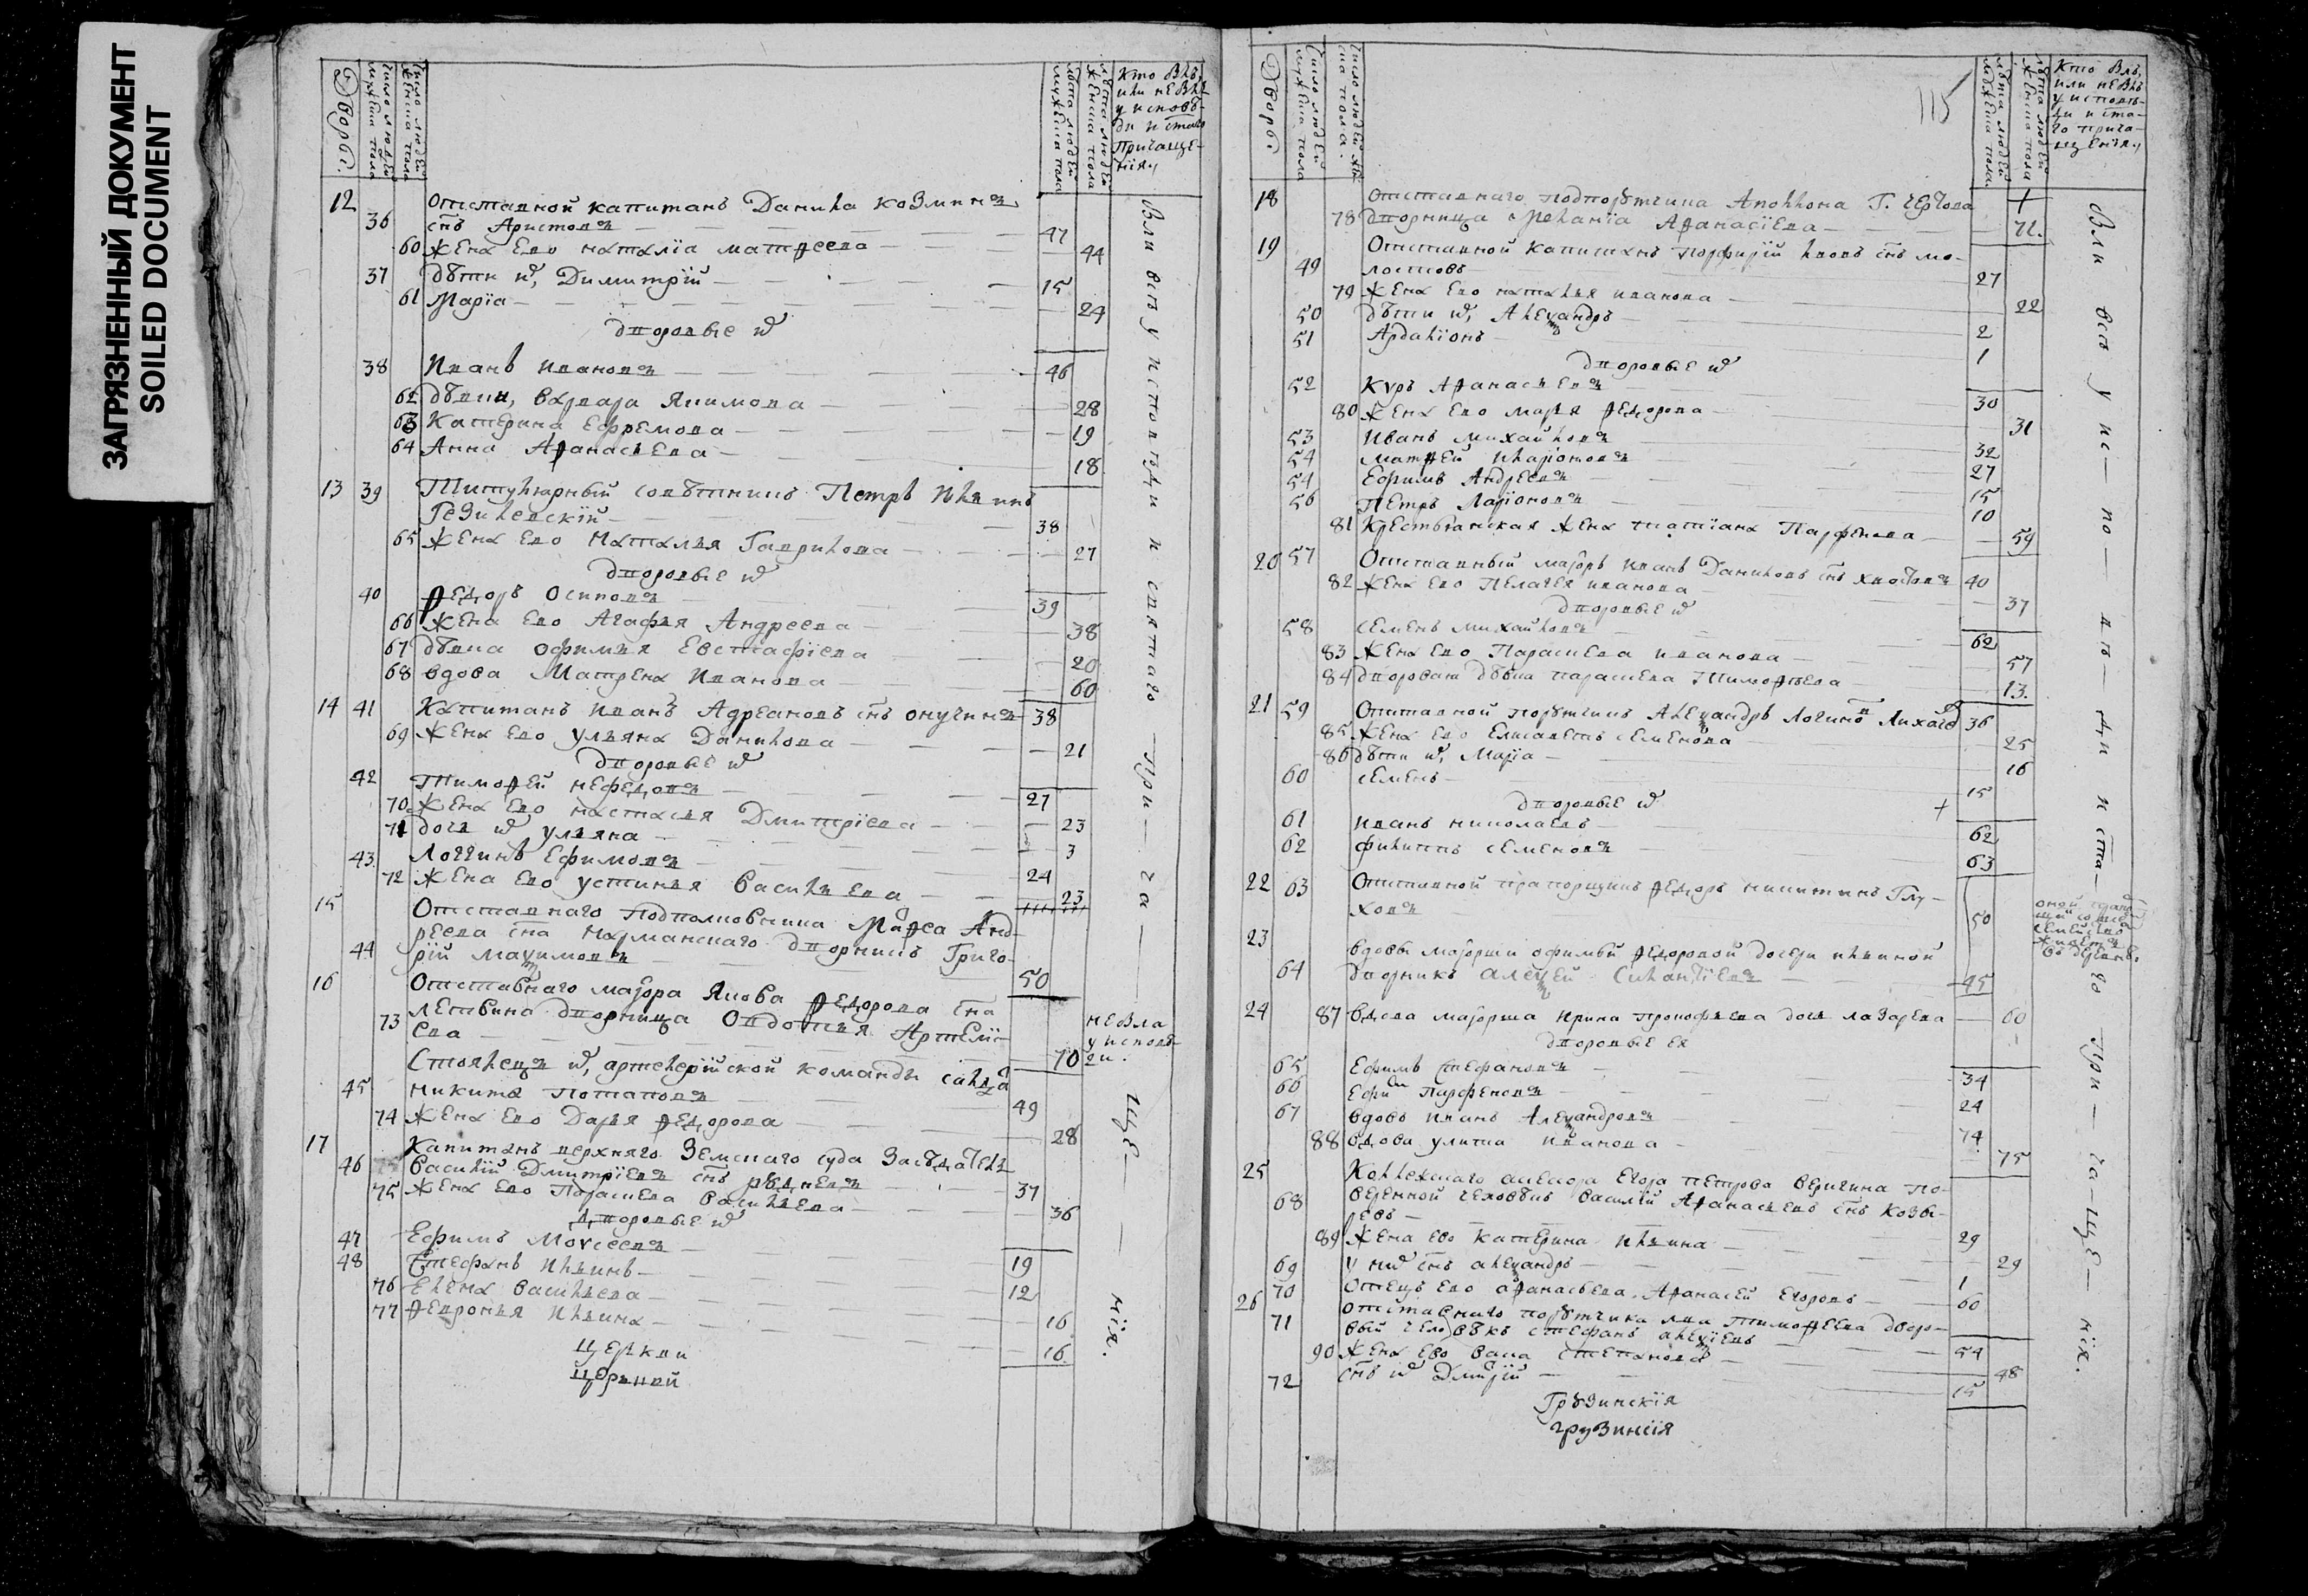 ЗАГРЯЗНЕННЫЙ ДОКУМЕНТ
SOILED DOCUMENT
Дворы.
Число людей мужеска пола
Число людей женска пола
Лѣта людей мужеска пола
Лѣта людей женска пола
Кто былъ
или не былъ
у исповѣ-
ди и стаго
причаще-
нія
12 Отставной капитанъ Данила Козминъ
36 снъ Аристовъ 47
60 Жена ево Наталіа Матѳеева 44
37 Дѣти и, Димитрій 15
61 Маріа 24
дворовые и
38 Иванъ Ивановъ 46
62 Дѣвки, Варвара Якимова 28
63 Катерина Ефремова 19
64 Анна Аѳанасьева 18
13 39 Титулярный совѣтникъ Петръ Ильинъ
38
65 Жена ево Наталья Гаврилова 27
дворовые и
40 Ѳедоръ Осиповъ 39
66 Жена ево Агафья Андреева 38
67 Дѣвка Офимья Евстафіева 20
68 Вдова Матрена Иванова 60
14 41 Капитанъ Иванъ Адреановъ снъ Онучинъ 38
69 Жена ево Ульяна Данилова 21
дворовые и
42 Тимоѳей Нефедовъ 27
70 Жена ево Настасья Дмитріева 23
71 Дочь и Ульяна 3
43 Логгинъ Ефимовъ 24
72 Жена ево Устинья Васильева 23
15 Отставнаго подполковника Марка Анд-
реева сна Нарманскаго дворникъ Григо-
44 рій Маѯимовъ 50
16 Отставнаго маіора Якова Ѳедорова сна
73 дворница Овдотья Артемі-
ева 70
не была
у исповѣ-
ди.
Стоялецъ и, артелерійской команды салдатъ
45 Никита Потаповъ 49
74 Жена ево Дарья Ѳедорова 28
17 Капитанъ верхняго земскаго суда засѣдатель
46 Василій Дмитріевъ снъ 37
75 Жена ево Парасковa Васильева 36
дворовые и
47 Ефимъ Моѵсеевъ 19
48 Стефанъ Ильинъ 12
76 Елена Васильева 16
77 Ѳевронья Ильина 16
Церкви
церкви
Были всѣ у исповѣди и святаго при—ча—ще—нія.
115
Дворы
Число людей мужеска пола
Число людей женска пола.
Лѣта людей мужеска пола
Лѣта людей женска пола
Кто былъ,
или не былъ
у исповѣ-
ди и ста-
го прича-
щенія
18 Отставнаго подпорутчика Аполлона Г. Чертова
78 дворница Меланіа Аѳанасіева 72.
19 Отставной капитанъ Порфирій Львовъ снъ Мо-
49 лостовъ 27
79 Жена ево Наталья Иванова 22
50 Дѣти и, Алеѯандръ 2
51 Ардаліонъ 1
дворовые и
52 Кѵръ Аѳанасьевъ 30
80 Жена ево Марья Ѳедорова 31
53 Иванъ Михайловъ 32
54 Матѳей Иларіоновъ 27
54 Ефимъ Андреевъ 15
56 Петръ Ларіоновъ 10
81 Крестьянская жена Татіана Парфенова 59
20 57 Отставный маіоръ Иванъ Даниловъ снъ Хвостовъ 40
82 Жена ево Пелагея Иванова 37
дворовые и
58 Семенъ Михайловъ 62
83 Жена ево Параскева Иванова 57
84 Дворовая дѣвка Параскева Тимоѳеева 13.
21 59 Отставной порутчикъ Алеѯандръ Логиновъ Лихачовъ 36
85 Жена ево Елисаветъ Семенова 25
86 Дѣти и, Маріа 16
60 Семенъ 15
дворовые и
61 Иванъ Николаевъ 62
62 Филиппъ Семеновъ 63
22 63 Отставной прапорщикъ Ѳедоръ Никитинъ Глу-
ховъ 50
23 Вдовы маіорши Офимьи Ѳедоровой дочери Ильиной
64 дворникъ Алеѯей Силантіевъ 45
24 87 Вдова маіорша Ирина Прокофьева дочь Лазарева 60
дворовые ея
65 Ефимъ Стефановъ 34
66 Ефимъ Парфеновъ 24
67 Вдовъ Иванъ Алеѯандровъ 74
88 Вдова Улита Иванова 75
25 Коллежскаго асесора Егора Петрова Веригина по-
68 веренной человѣкъ Василій Аѳанасьевъ снъ Козы-
ревъ 29
89 Жена ево Катерина Ильина 29
69 У ни снъ Алеѯандръ 1
70 Отецъ ево Аѳанасьева, Аѳанасей Егоровъ 60
26 Отставнаго порутчика Льва Тимоѳеева дворо-
71 вый человѣкъ Стефанъ Алеѯіевъ 54
90 Жена ево Васа Степанова 48
72 снъ и Дмитрій 15
Грузинскія
грузинскія
Были всѣ у ис—по—вѣ—ди и ста—го при—ча—ще—нія.